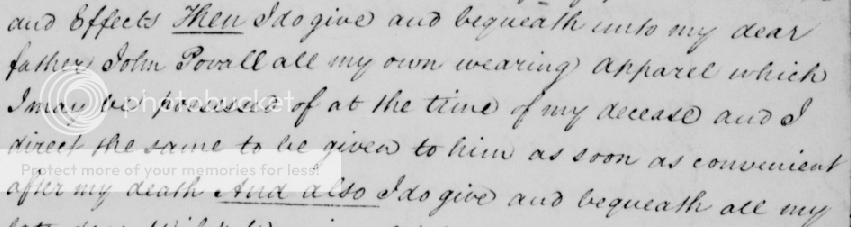 and Effects Then I do give and bequeath unto my dear
father John Povall all my own wearing Apparel which
I may be possessed of at the time of my decease and I
direct the same to be given to him as soon as convenient
after my death And also I do give and bequeath all my
photobucket
Protect more of your memories for less!